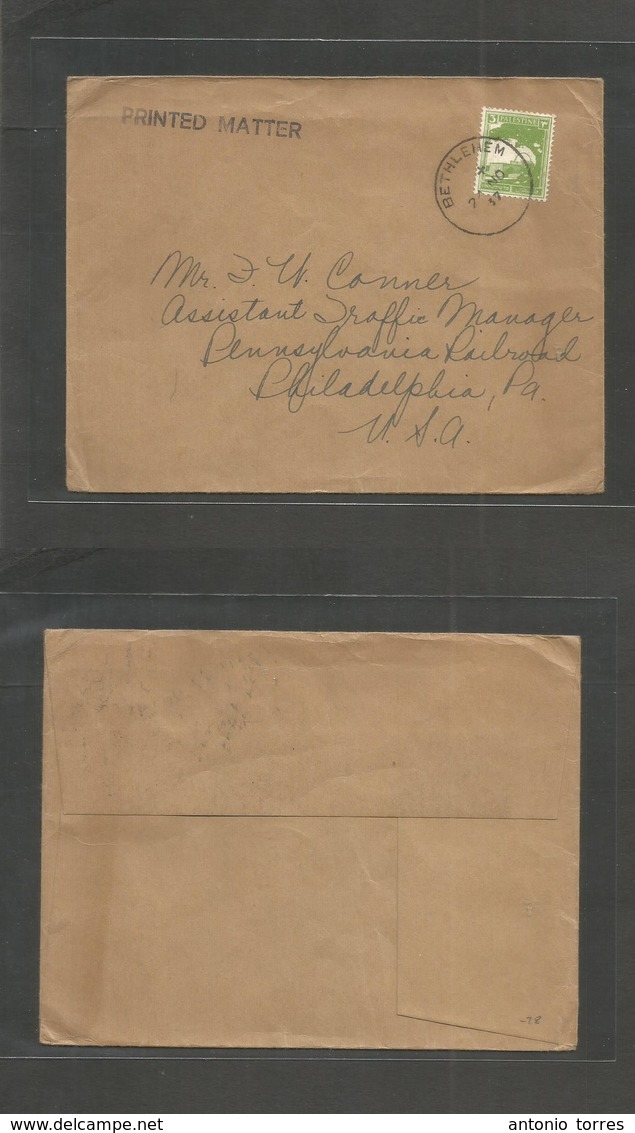 PRINTED MATTER
3 PALESTINE ٣
BETHLEHEM
NO
37
Mr. F. W. Conner
Assistant Traffic Manager
Pennsylvania Railroad
Philadelphia, Pa.
U. S. A.
-78
www.delcampe.net
antonio torres